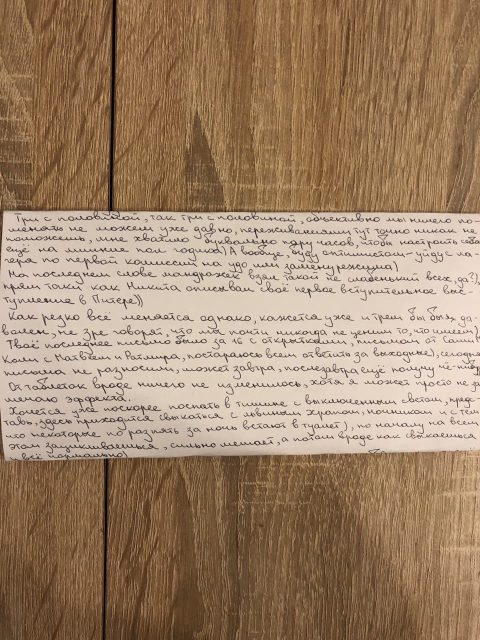 Три с половиной, так три с половиной, объективно мы ничего по-
менять не можем уже давно, переживаниями тут точно никак не
поможешь, мне хватило буквально пару часов, чтобы настроить себя
ещё на минимум пол годика) А вообще, буду оптимистом - уйду с ла-
геря по первой комиссии на удо или замену режима)
На последнем слове мандражек взял такой не слабенький всех, да?),
прям такой как Никита описывал своё первое вступительное выс-
тупление в Питере))
Как резко всё меняется однако, кажется уже и трем бы был до-
волен, не зря говорят, что мы почти никогда не ценим то, что имеем)
Твоё последнее письмо было за 16 с открытками, письмом от Саши
Коли с Матвеем и Ратмира, постараюсь всем ответить за выходные), сегодня
письма не разносили, может завтра, послезавтра ещё получу че-нибудь
От таблеток вроде ничего не изменилось, хотя я может просто не за-
мечаю эффекта.
Хочется уже поскорее поспать в тишине с выключенным светом, пред-
тавь, здесь приходится свыкаться с львиным храпом, ночником и с тем
что некоторые по раз пять за ночь встают в туалет), по началу на всём
этом зацикливаешься, сильно мешает, а потом вроде как свыкаешься
и всё нормально)